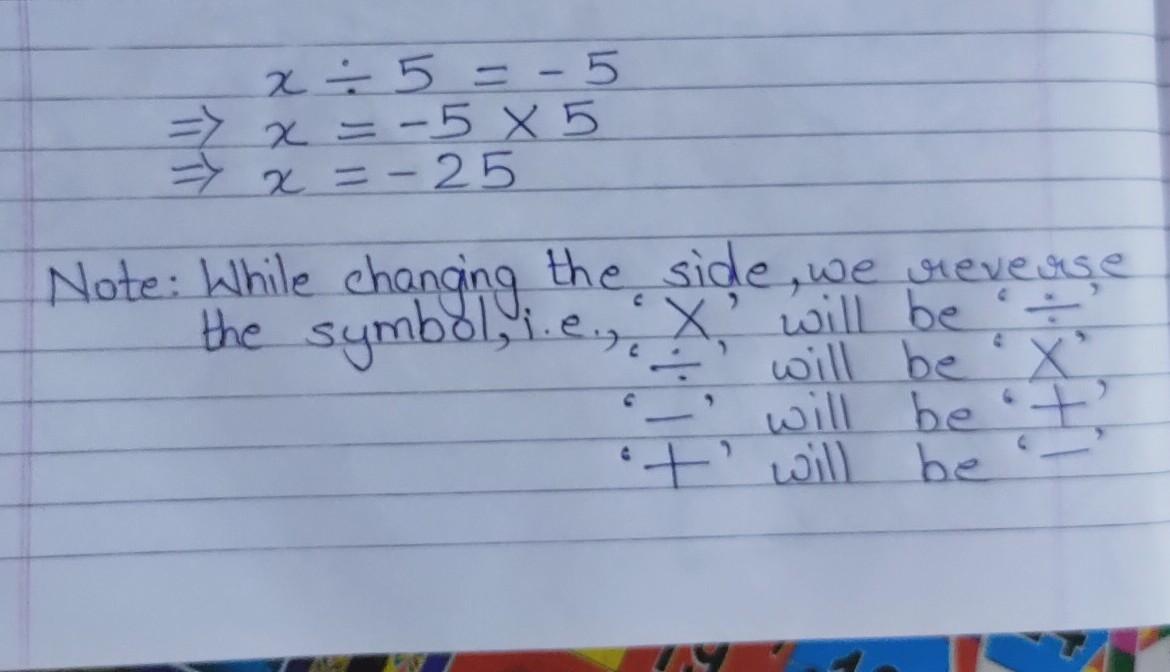 x ÷ 5 = - 5
⇒ x = -5 × 5
⇒ x = - 25
Note: While changing the side, we reverse
the symbol, i.e., ‘×’ will be ‘÷’
‘÷’ will be ‘×’
‘-’ will be ‘+’
‘+’ will be ‘-’